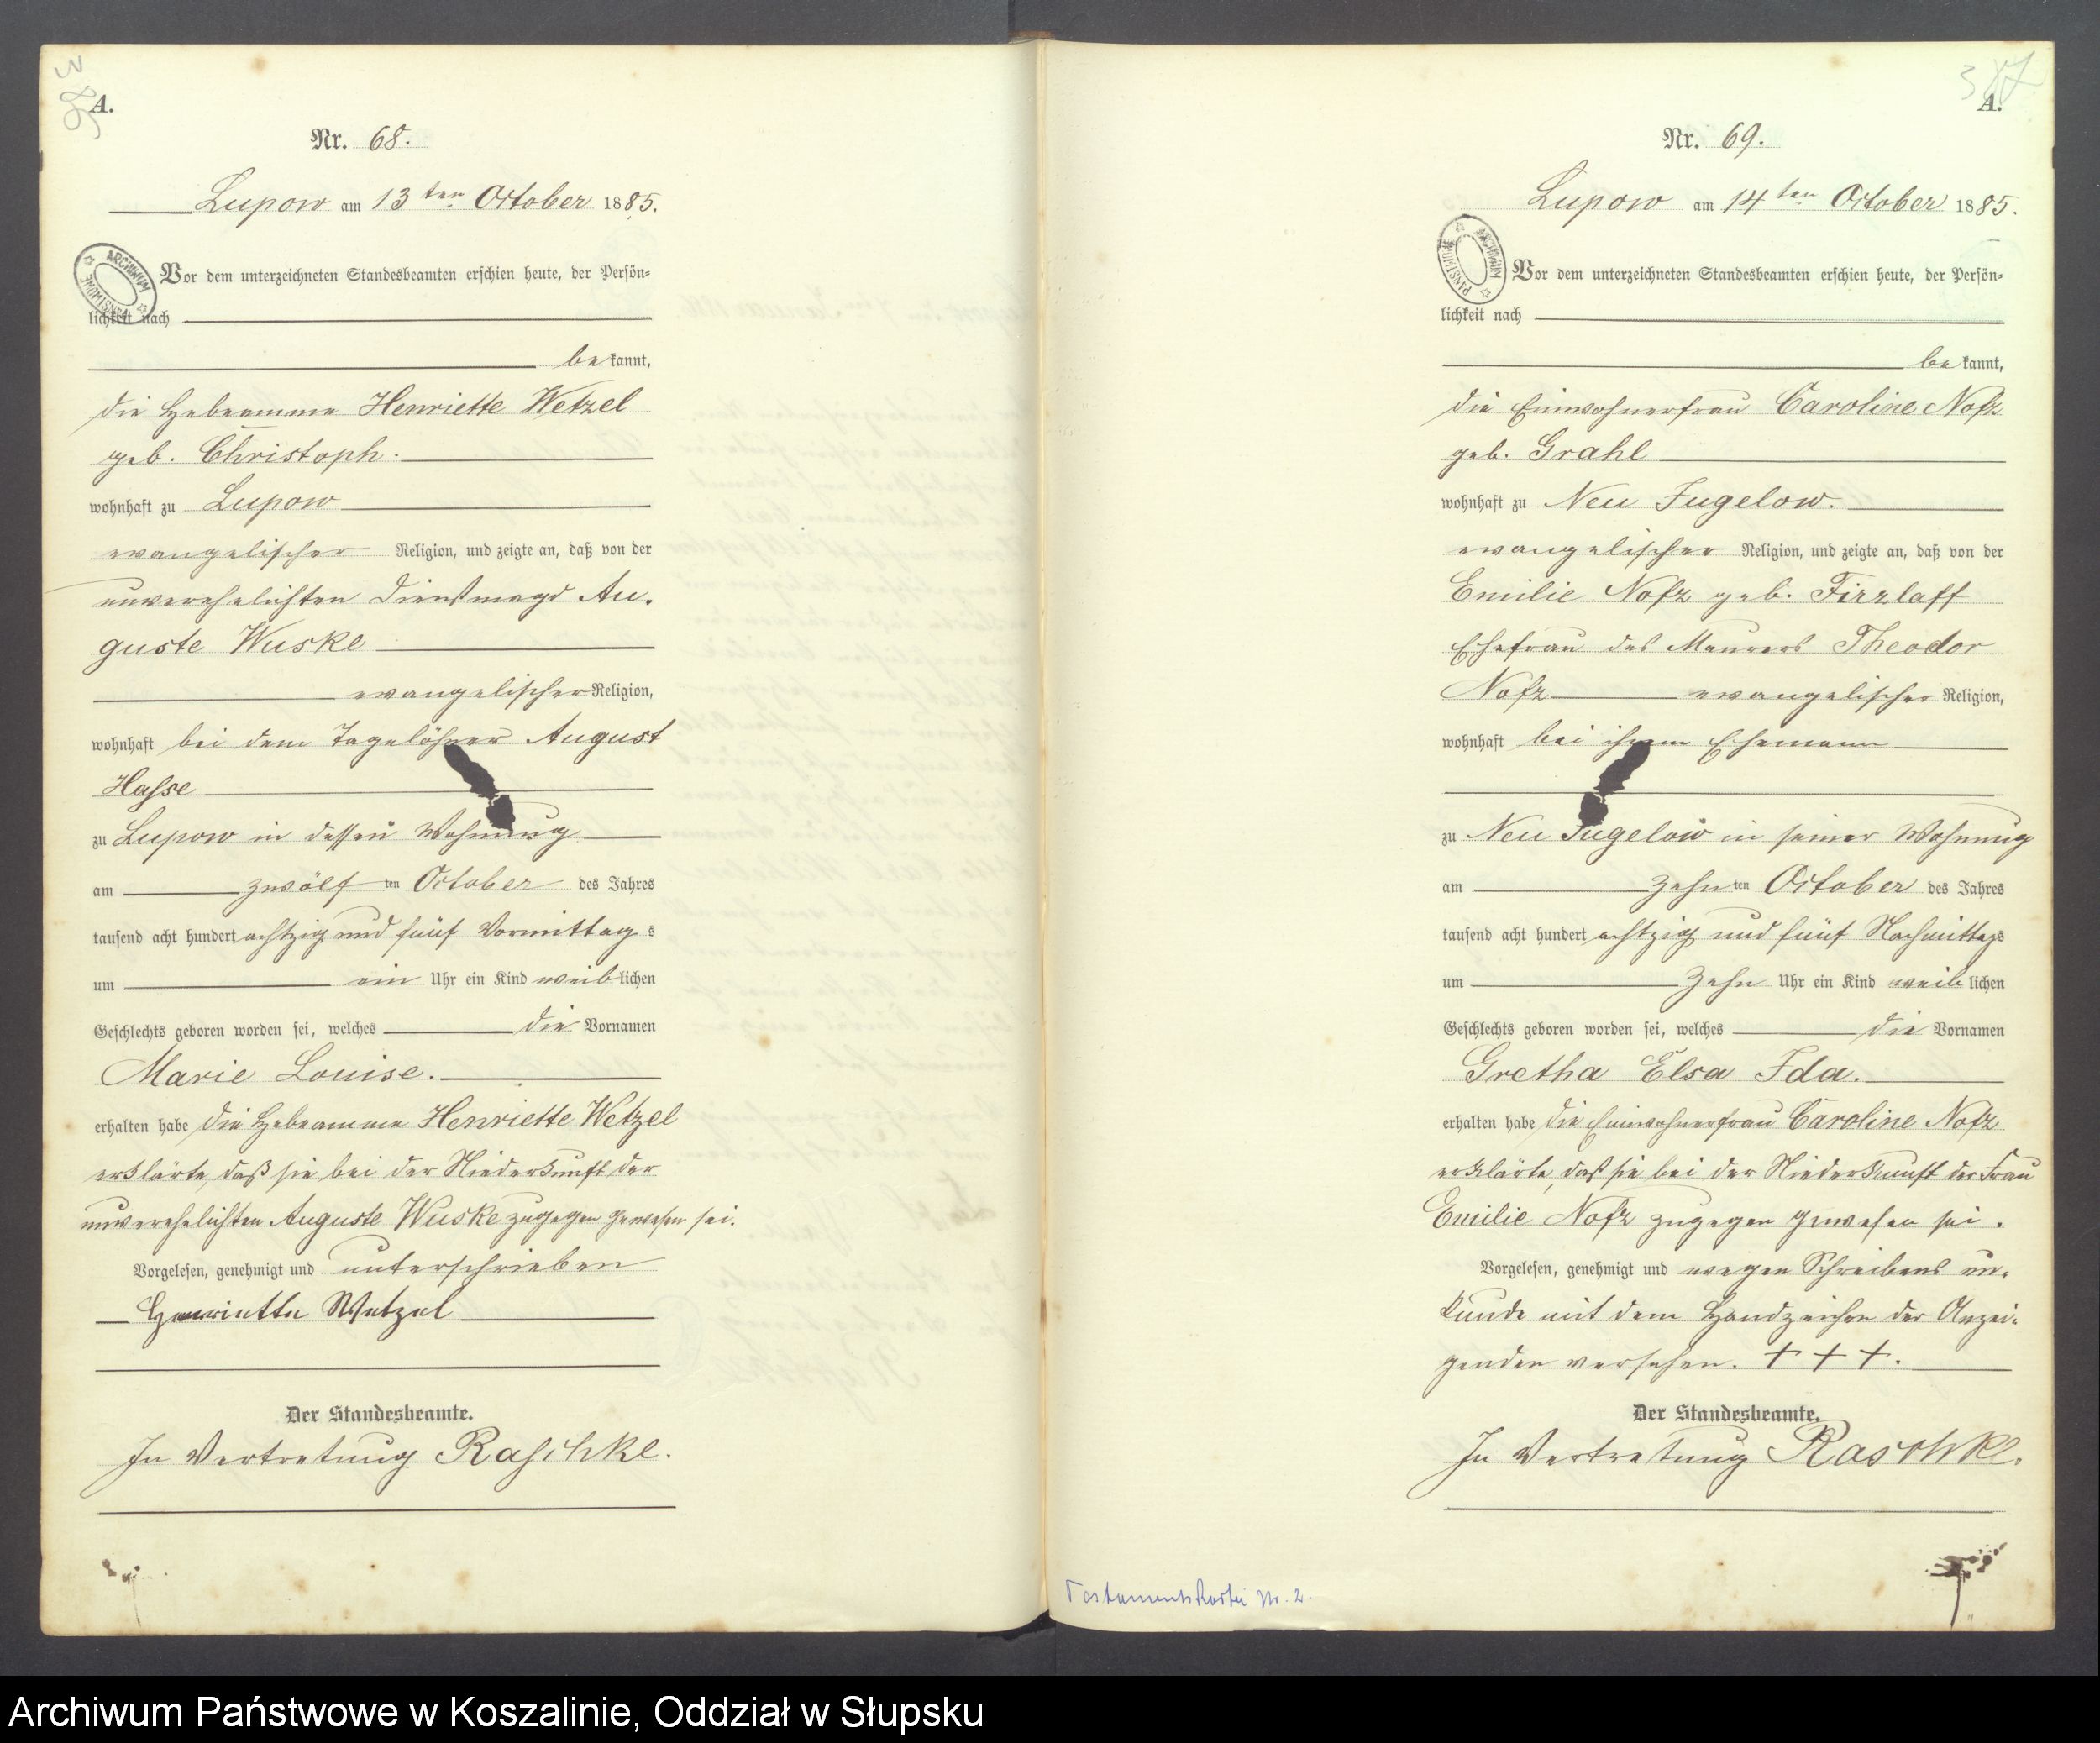 386
A.
Nr. 68.
Lupow am 13ten October 1885.
ARCHIWUM PAŃSTWOWE
Vor dem unterzeichneten Standesbeamten erschien heute, der Persön=
lichkeit nach
bekannt,
die Hebeamme Henriette Wetzel
geb. Christoph.
wohnhaft zu Lupow
evangelischer Religion, und zeigte an, daß von der
unverehelichten Dienstmagd Au-
guste Wuske
evangelischer Religion,
wohnhaft bei dem Tagelöhner August
Hasse
zu Lupow in dessen Wohnung
am zwölften October des Jahres
tausend acht hundert achtzig und fünf Vormittags
um ein Uhr ein Kind weiblichen
Geschlechts geboren worden sei, welches die Vornamen
Marie Louise.
erhalten habe die Hebeamme Henriette Wetzel
erklärte, daß sie bei der Niederkunft der
unverehelichten Auguste Wuske zugegen gewesen sei.
Vorgelesen, genehmigt und unterschrieben
Henriette Wetzel
Der Standesbeamte.
In Vertretung Raschke.
387
A.
Nr. 69.
Lupow am 14ten October 1885.
ARCHIWUM PAŃSTWOWE
Vor dem unterzeichneten Standesbeamten erschien heute, der Persön=
lichkeit nach
bekannt,
die Einwohnerfrau Caroline Nofz
geb. Grahl
wohnhaft zu Neu Jugelow.
evangelischer Religion, und zeigte an, daß von der
Emilie Nofz geb. Firzlaff
Ehefrau des Maurers Theodor
Nofz evangelischer Religion,
wohnhaft bei ihrem Ehemann
zu Neu Jugelow in seiner Wohnung
am zehnten October des Jahres
tausend acht hundert achtzig und fünf Nachmittags
um zehn Uhr ein Kind weiblichen
Geschlechts geboren worden sei, welches die Vornamen
Gretha Elsa Ida.
erhalten habe die Einwohnerfrau Caroline Nofz
erklärte, daß sie bei der Niederkunft der Frau
Emilie Nofz zugegen gewesen sei.
Vorgelesen, genehmigt und wegen Schreibens un-
kunde mit dem Handzeichen der Anzei-
genden versehen. + + +.
Der Standesbeamte.
In Vertretung Raschke.
Testamentskartei Nr. 2.
Archiwum Państwowe w Koszalinie, Oddział w Słupsku